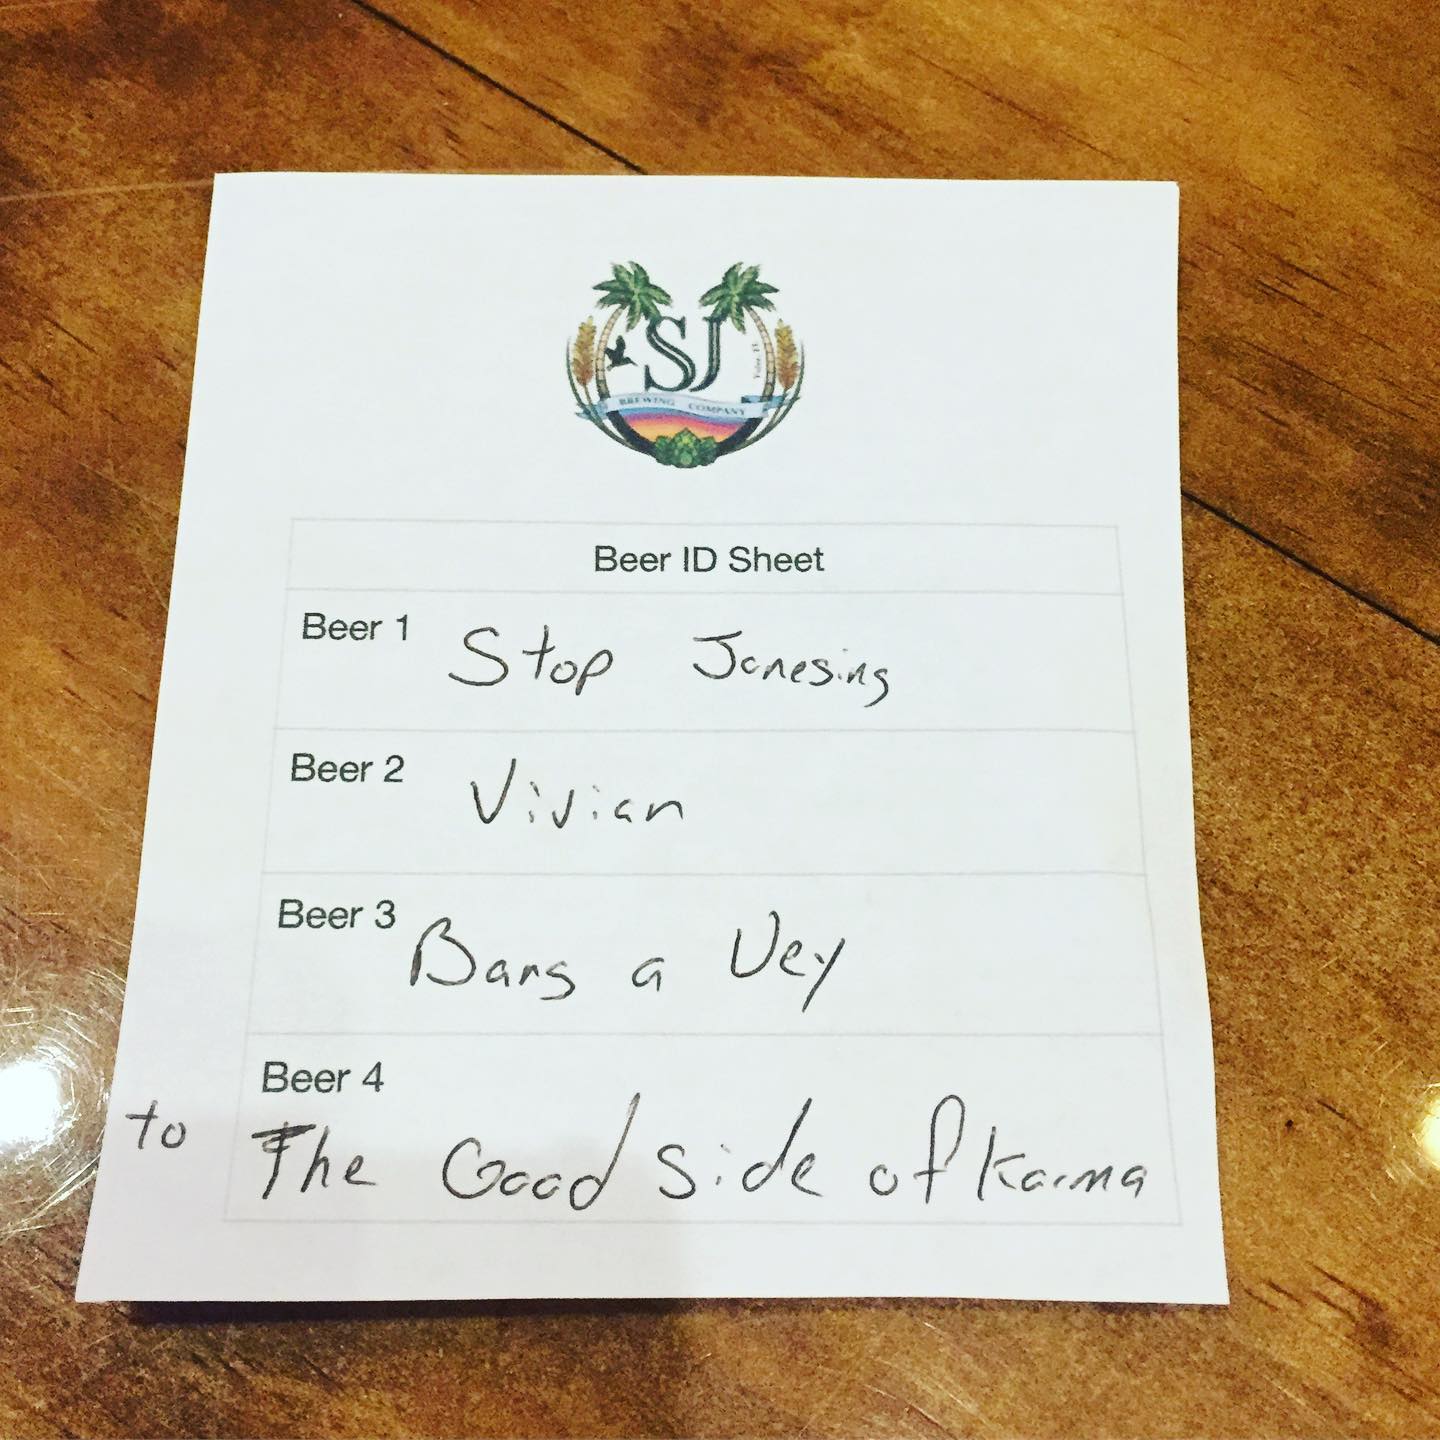 SJ
BREWING COMPANY
Beer ID Sheet
Beer 1 Stop Jonesing
Beer 2 Vivian
Beer 3 Bang a Uey
Beer 4
to The Good side of Karma